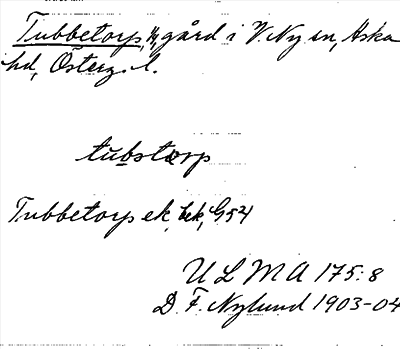 Tubbetorp, gård i V. Ny sn, Aska
hd, Österg. l.
tubstorp
Tubbetorp ek, bk, G54
ULMA 175:8
D. F. Nylund 1903-04